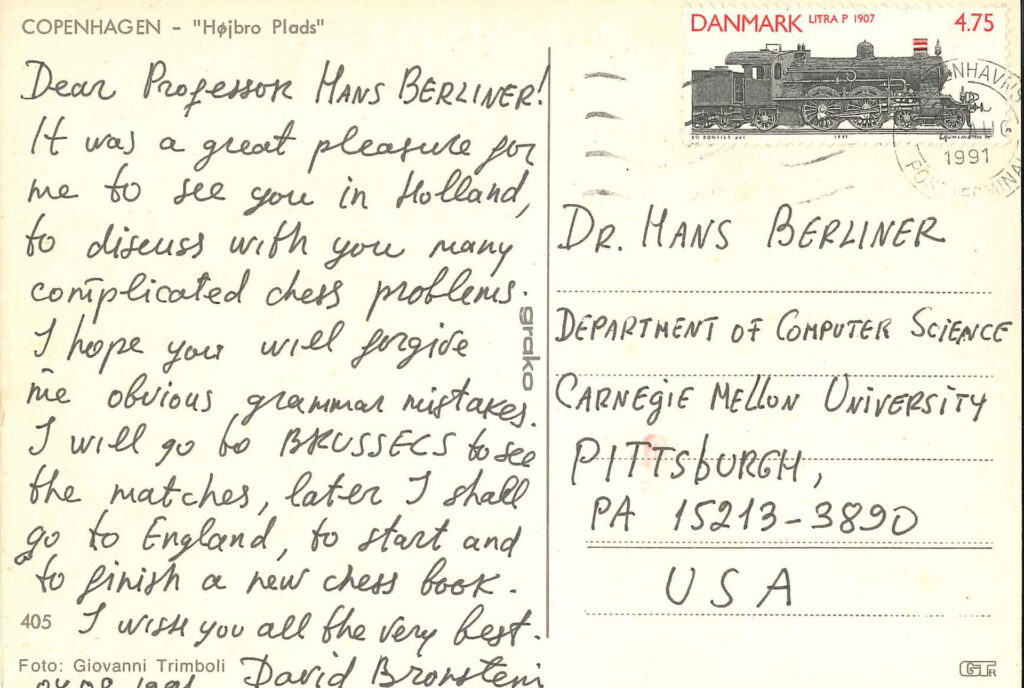 COPENHAGEN - "Højbro Plads"
Dear Professor HANS BERLINER!
It was a great pleasure for
me to see you in Holland,
to discuss with you many
complicated chess problems.
I hope you will forgive
me obvious grammar mistakes.
I will go to BRUSSECS to see
the matches, later I shall
go to England, to start and
to finish a new chess book.
I wish you all the very best.
David Bronstein
405
Foto: Giovanni Trimboli
grako
DANMARK LITRA P 1907 4.75
1991
DR. HANS BERLINER
DEPARTMENT OF COMPUTER SCIENCE
CARNEGIE MELLON UNIVERSITY
PITTSBURGH,
PA 15213-3890
USA